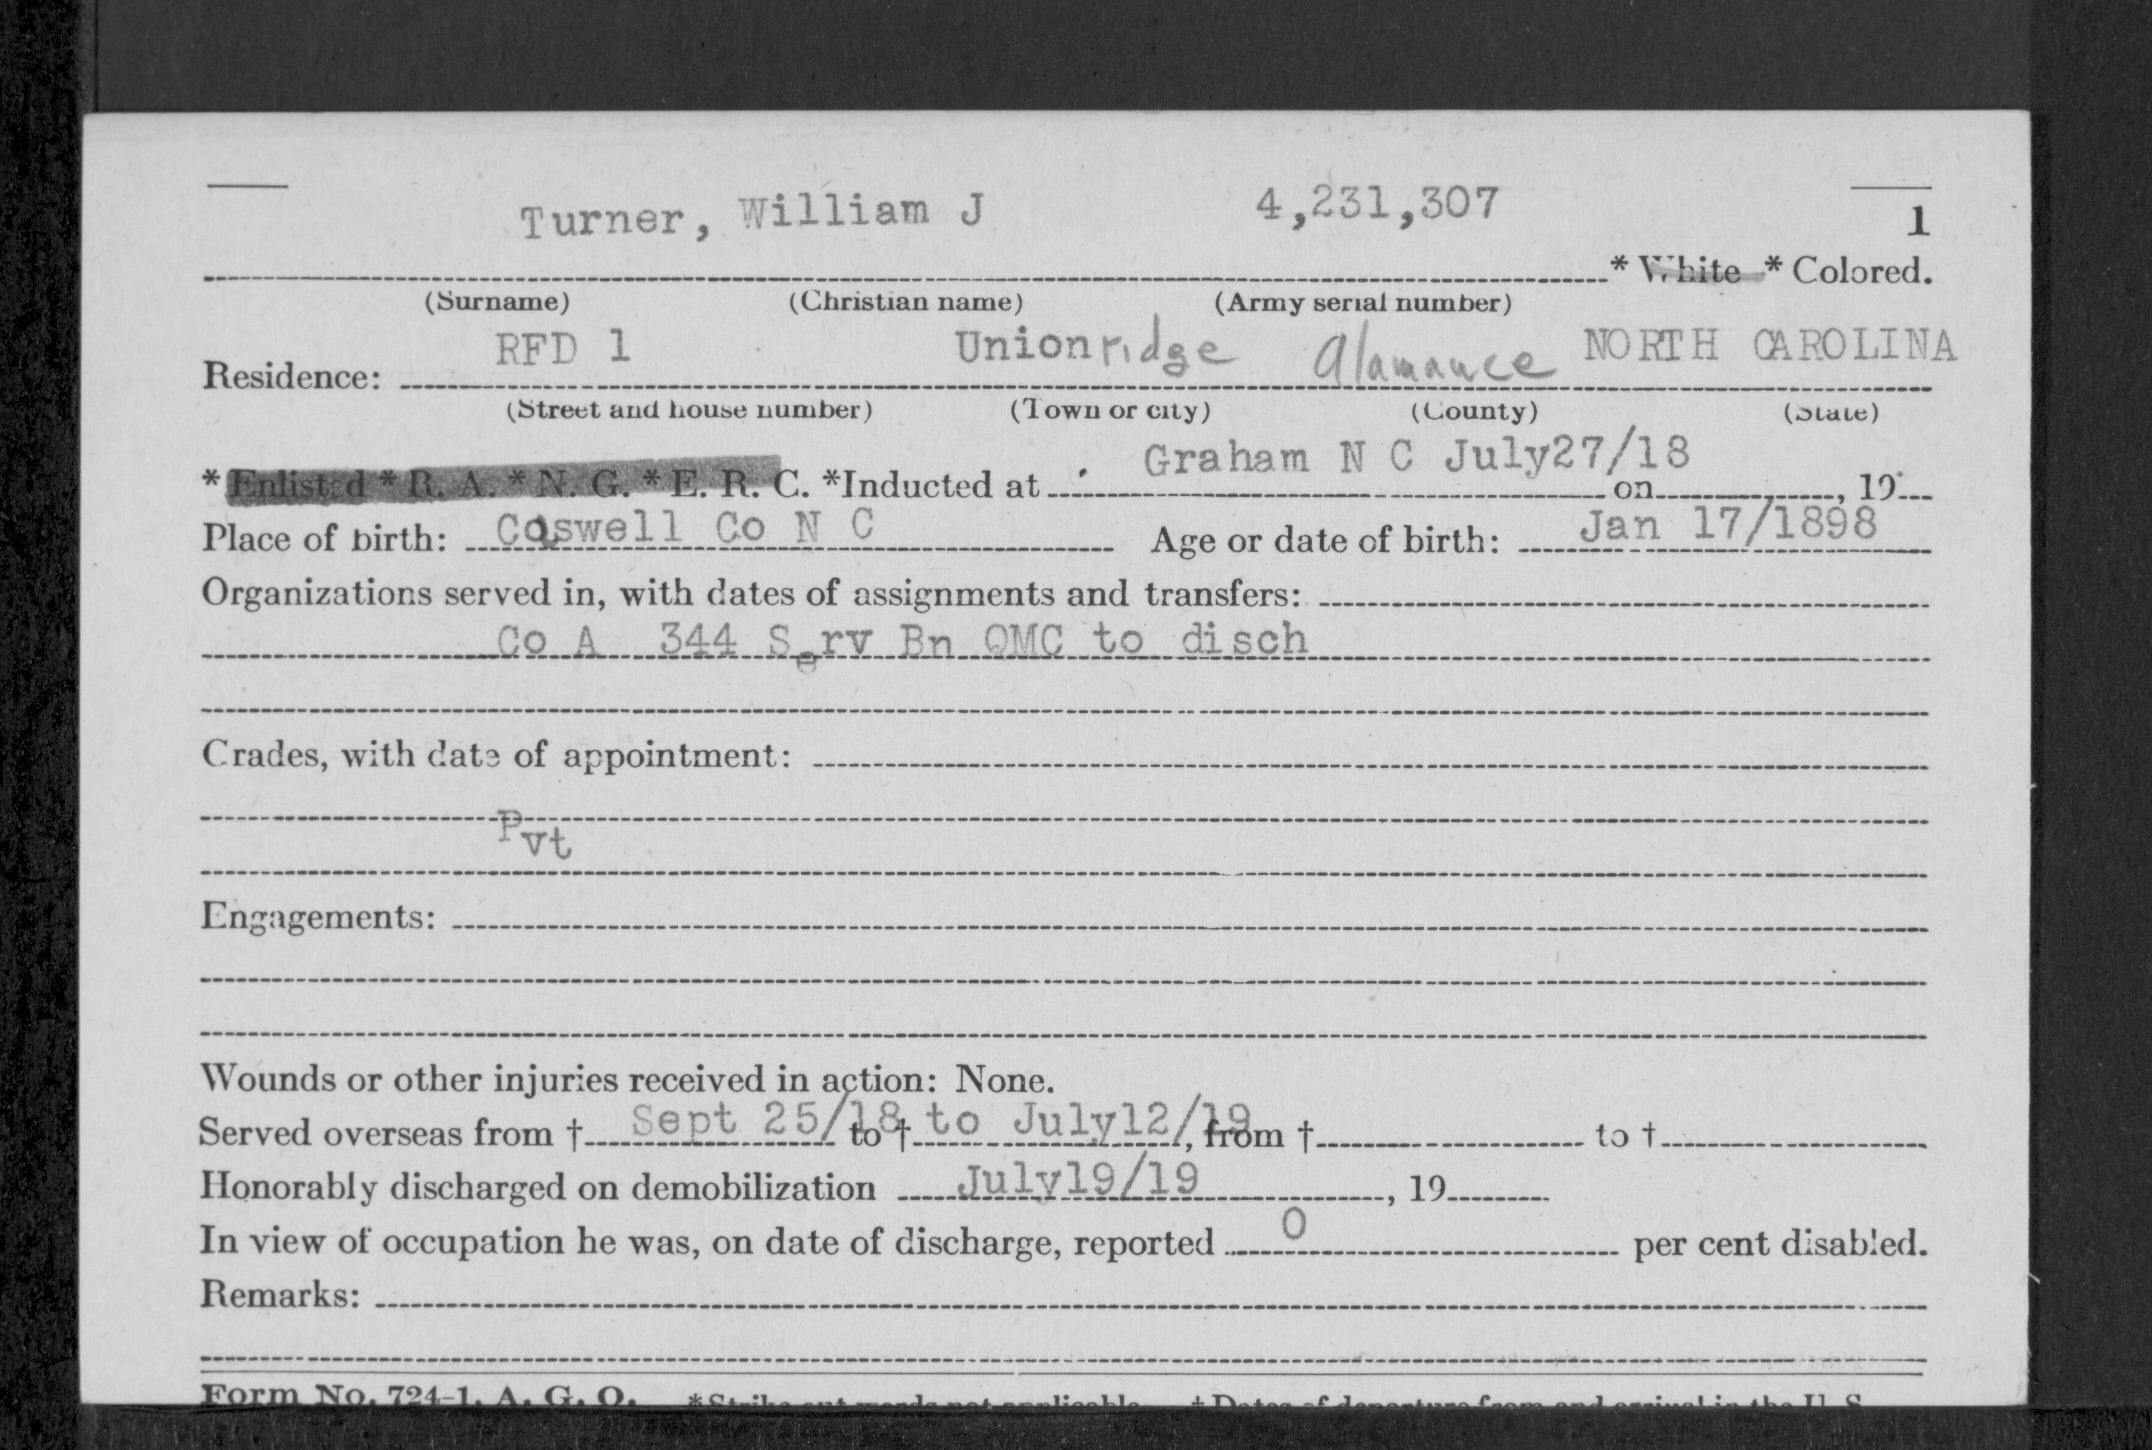 Turner, William J 4,231,307 1
* White * Colored.
(Surname) (Christian name) (Army serial number)
RFD 1 Unionridge Alamance NORTH CAROLINA
Residence:
(Street and house number) (Town or city) (County) (State)
Graham N C July27/18
* Enlisted * R. A. * N. G. * E. R. C. *Inducted at on , 19
Place of birth: Caswell Co N C Age or date of birth: Jan 17/1898
Organizations served in, with dates of assignments and transfers:
Co A 344 Serv Bn QMC to disch
Grades, with date of appointment:
Pvt
Engagements:
Wounds or other injuries received in action: None.
Served overseas from † Sept 25/18 to † to July12/19, from † to †
Honorably discharged on demobilization July19/19 , 19
In view of occupation he was, on date of discharge, reported 0 per cent disabled.
Remarks:
Form No. 724-1, A. G. O. *Strike out words not applicable. † Dates of departure from and arrival in the U. S.